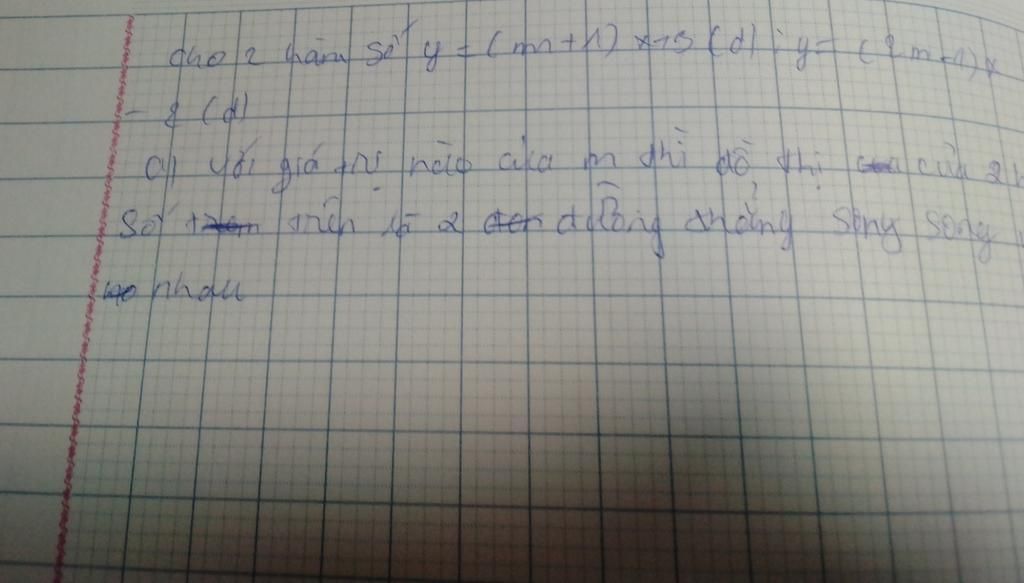 cho 2 hàm số y = (m+1) x+3 (d) ; y = (2m+1)x
- 2 (d)
a) Với giá trị nào của m thì đồ thị của 2 h
số trên là 2 đường thẳng song song
nhau